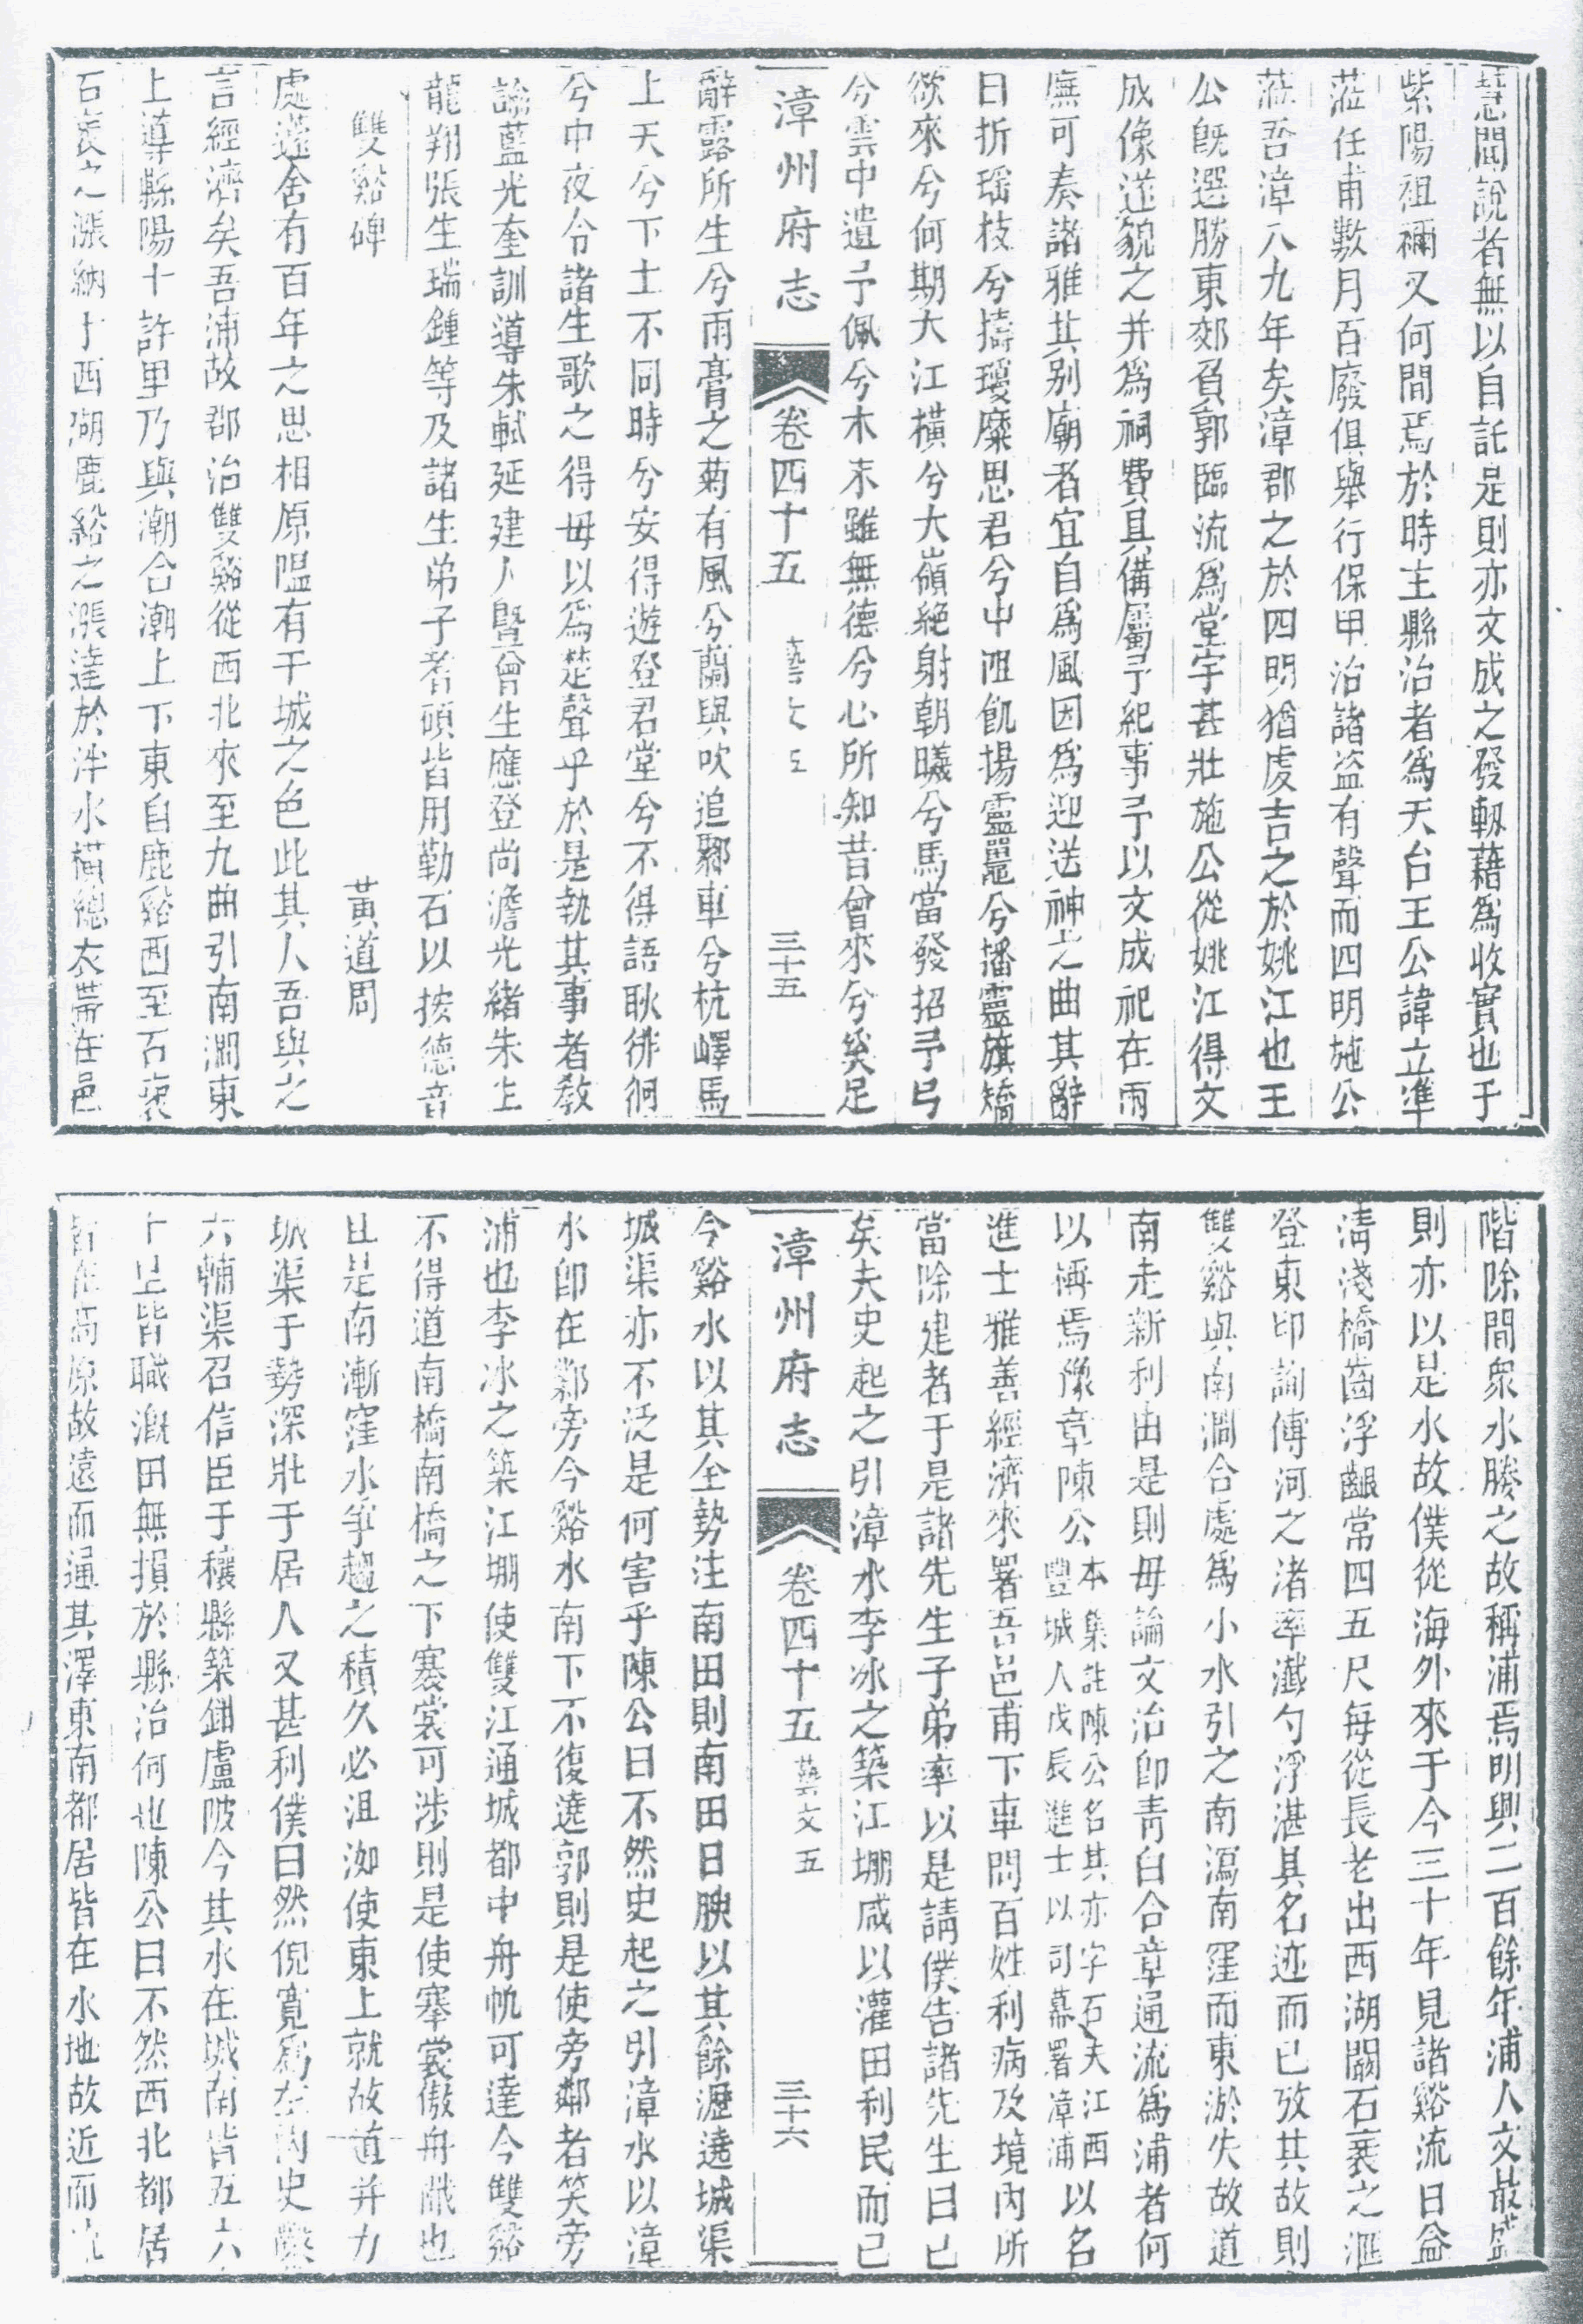 慧聞說者無以自託是則亦文成之發軔藉爲收實也于
紫陽祖禰又何間焉於時主縣治者爲天台王公諱立準
蒞任甫數月百廢俱舉行保甲治諸盜有聲而四明施公
蒞吾漳八九年矣漳郡之於四明猶虔吉之於姚江也王
公旣選勝東郊負郭臨流爲堂宇甚壯施公從姚江得文
成像遂貌之并爲祠費且備屬予紀事予以文成祀在兩
廡可奏諸雅其别廟者宜自爲風因爲迎送神之曲其辭
曰折瑶枝兮擣瓊糜思君兮中阻飢揚靈鼉兮播靈旗矯
欲來兮何期大江橫兮大嶺絶射朝曦兮馬當發招予弓
兮雲中遺予佩兮木末雖無德兮心所知昔曾來兮奚足
漳州府志
卷四十五
藝文五
三十五
辭露所生兮雨膏之菊有風兮蘭與吹追鄹車兮杭嶧馬
上天兮下土不同時兮安得遊登君堂兮不得語耿徘徊
兮中夜令諸生歌之得毋以爲楚聲乎於是執其事者敎
諭藍光奎訓導朱軾延建人曁曾生應登尚澹光緒朱生
龍翔張生瑞鍾等及諸生弟子耆碩皆用勒石以按德音
雙谿碑
黃道周
處蓬舍有百年之思相原隰有干城之色此其人吾與之
言經濟矣吾浦故郡治雙谿從西北來至九曲引南澗東
上導縣陽十許里乃與潮合潮上下東自鹿谿西至石衺
石衺之漲納于西湖鹿谿之漲達於泮水橫總衣帶在邑
階除間衆水媵之故稱浦焉明興二百餘年浦人文最盛
則亦以是水故僕從海外來于今三十年見諸谿流日益
淸淺橋齒浮齦常四五尺每從長老出西湖闢石衺之滙
登東印詢傅河之渚率瀐勺浮湛具名迹而已攷其故則
雙谿與南澗合處爲小水引之南瀉南窪而東淤失故道
南走新利由是則毋論文治卽靑白合章通流爲浦者何
以稱焉豫章陳公
本集註陳公名其亦字石夫江西
豐城人戊辰進士以司幕署漳浦
以名
進士雅善經濟來署吾邑甫下車問百姓利病及境內所
當除建者于是諸先生子弟率以是請僕告諸先生曰已
矣夫史起之引漳水李冰之築江堋咸以灌田利民而已
漳州府志
卷四十五
藝文五
三十六
今谿水以其全勢注南田則南田日腴以其餘瀝遶城渠
城渠亦不泛是何害乎陳公曰不然史起之引漳水以漳
水卽在鄴旁今谿水南下不復遶郭則是使旁鄰者笑旁
浦也李冰之築江堋使雙江通城都中舟帆可達今雙谿
不得道南橋南橋之下褰裳可涉則是使搴裳傲舟檝也
且是南漸窪水爭趨之積久必沮洳使東上就故道并力
城渠于勢深壯于居人又甚利僕曰然倪寬爲左內史鑿
六輔渠召信臣于穰縣築鉗盧陂今其水在城南皆五六
十里皆職漑田無損於縣治何也陳公曰不然西北都居
皆在高原故遠而通其澤東南都居皆在水地故近而